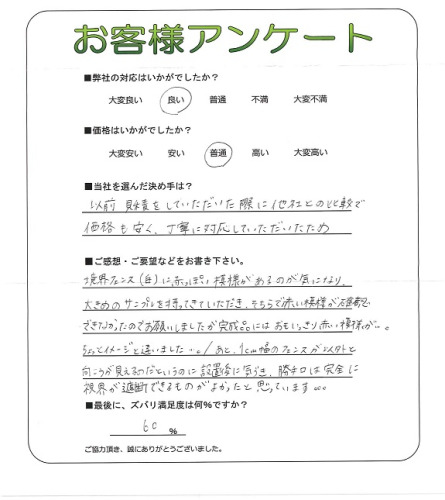 お客様アンケート
■弊社の対応はいかがでしたか?
大変良い 良い 普通 不満 大変不満
■価格はいかがでしたか?
大変安い 安い 普通 高い 大変高い
■当社を選んだ決め手は?
以前 見積をしていただいた際に他社との比較で
価格も安く、丁寧に対応していただいたため
■ご感想・ご要望などをお書き下さい。
境界フェンス に赤っぽい模様があるのが気になり、
大きめのサンプルを持ってきていただき、そちらで赤い模様が確認
できなかったのでお願いしましたが完成品にはおもいっきり赤い模様が…。
ちょっとイメージと違いました…。/あと、1cm幅のフェンスが以外と
向こうが見えるのだというのに設置後に気づき、勝手口は完全に
視界が遮断できるものがよかったと思っています…
■最後に、ズバリ満足度は何%ですか?
60 %
ご協力頂き、誠にありがとうございました。